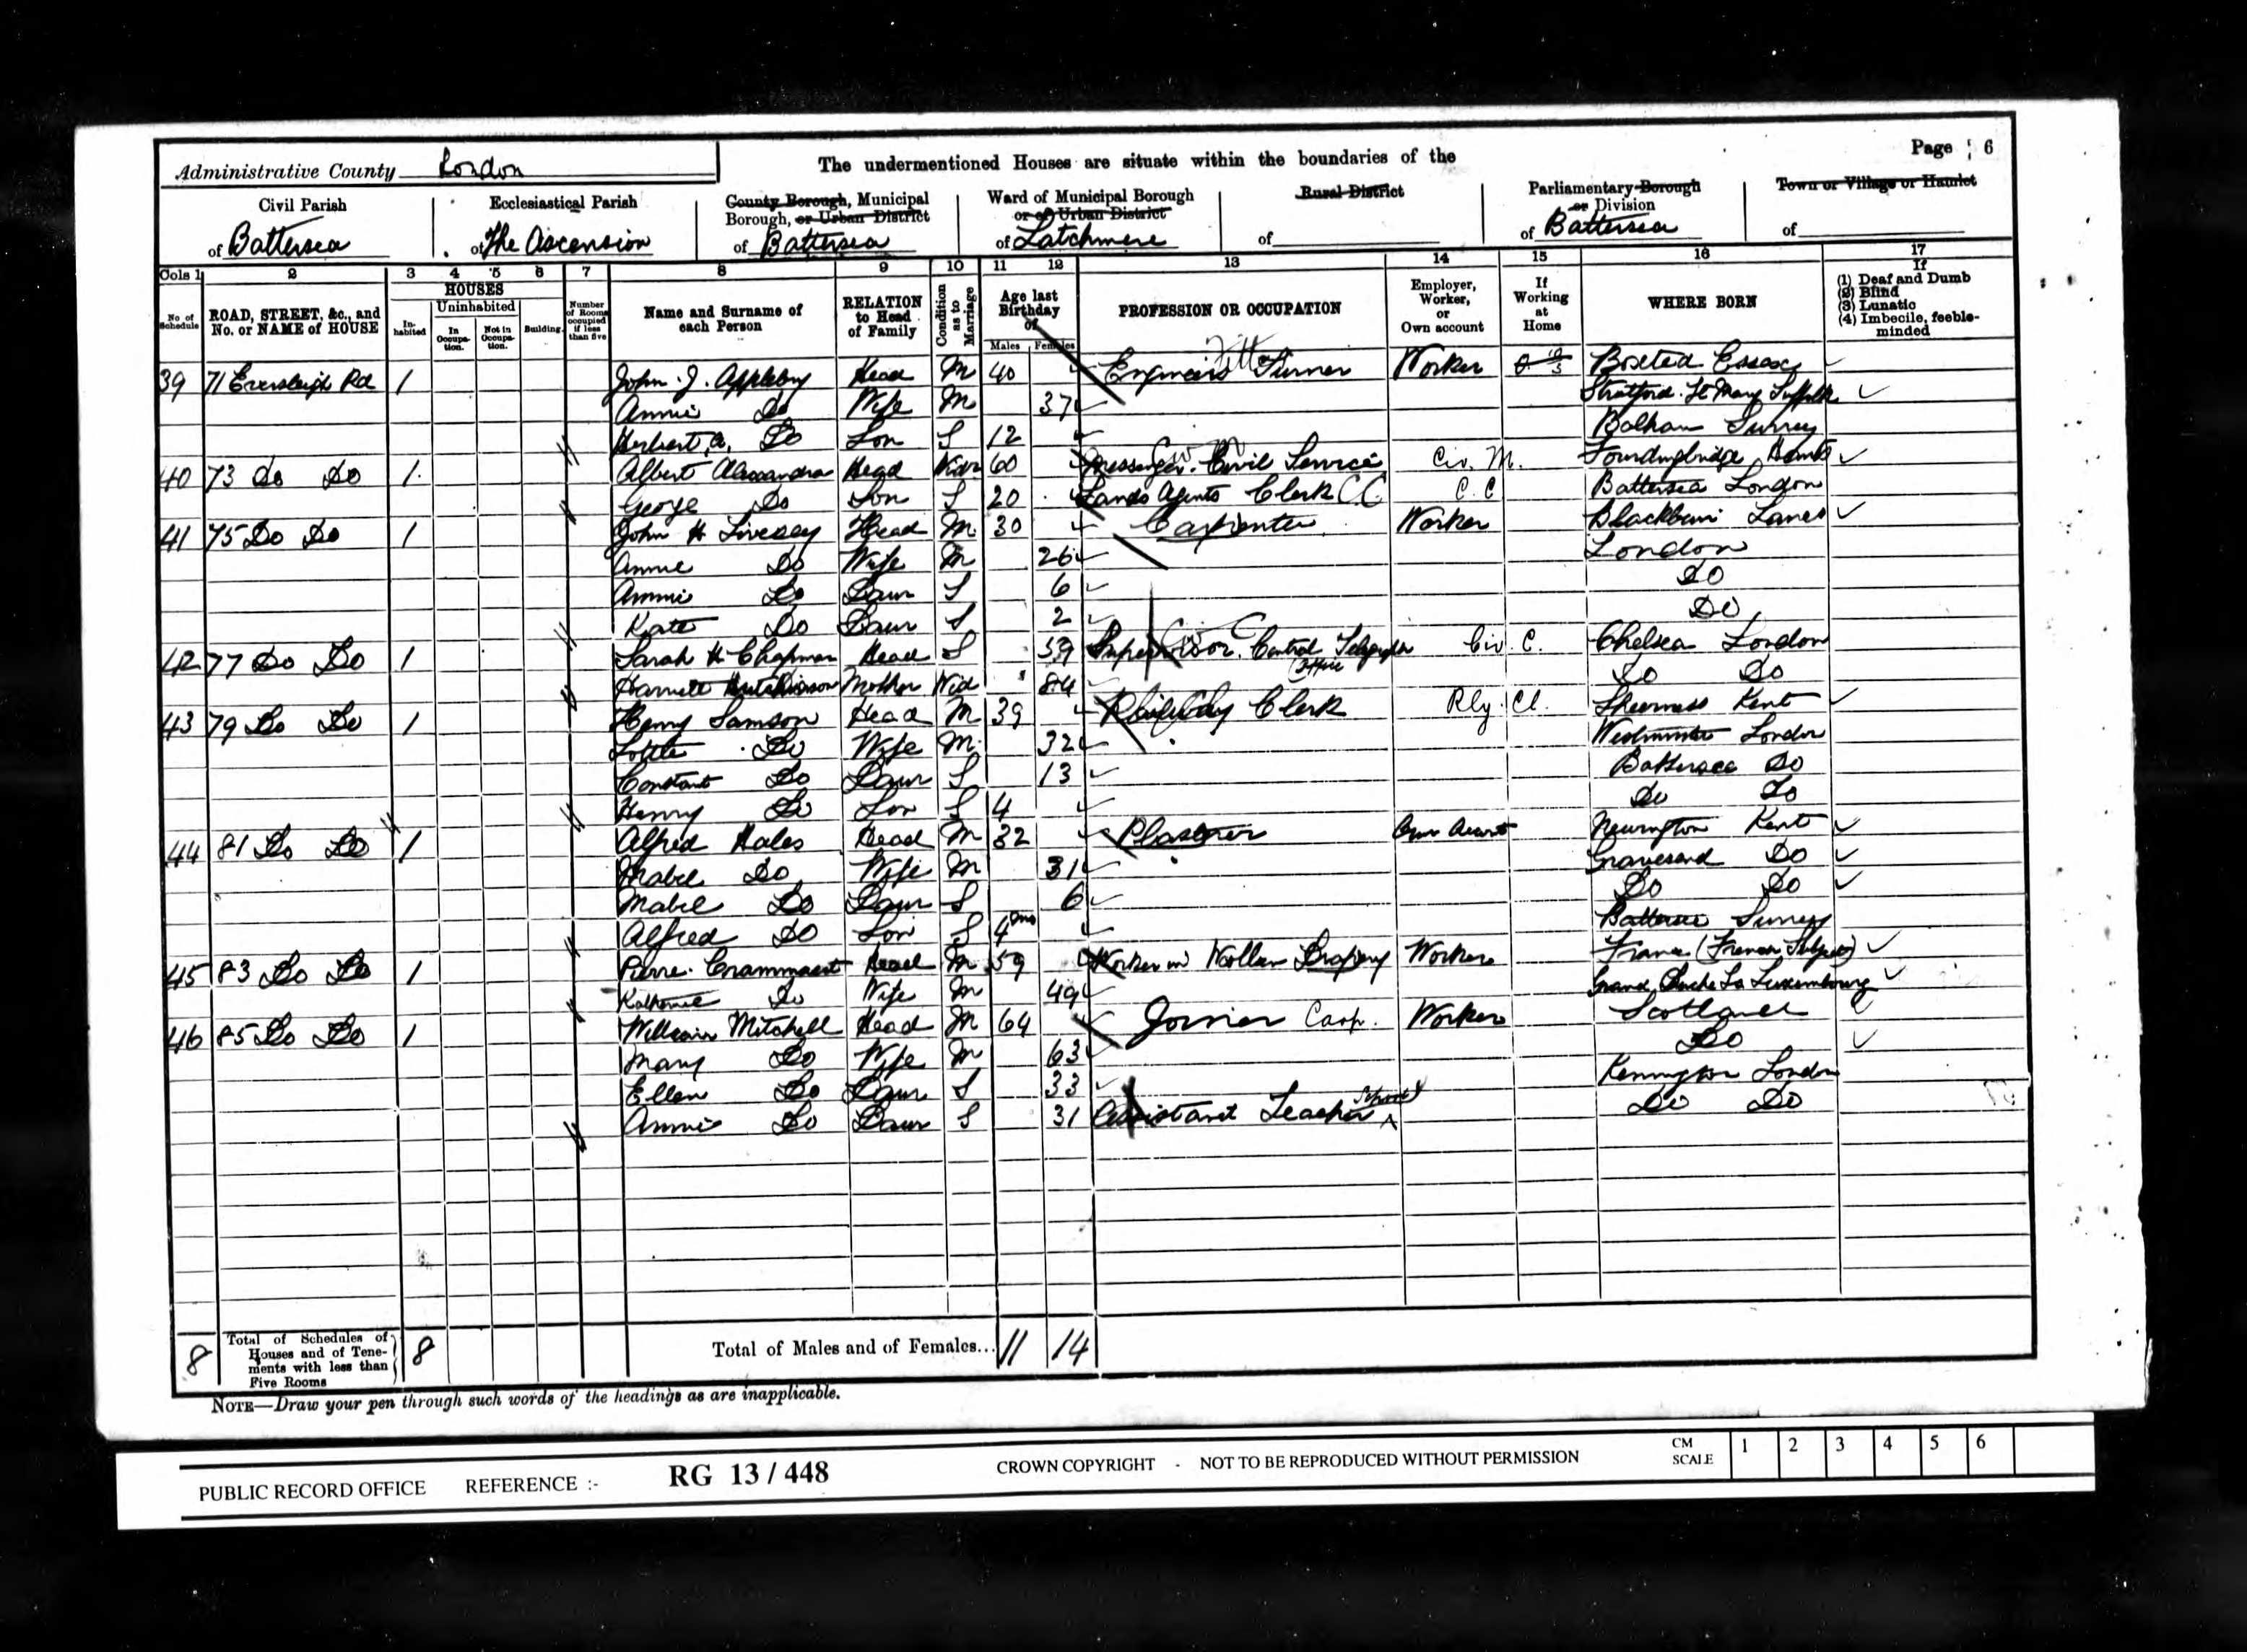 Page 6
Administrative County London
The undermentioned Houses are situate within the boundaries of the
Civil Parish
of Battersea
Ecclesiastical Parish
of The Ascension
County Borough, Municipal
Borough, or Urban District
of Battersea
Ward of Municipal Borough
or of Urban District
of Latchmere
Rural District
of
Parliamentary Borough
or Division
of Battersea
Town or Village or Hamlet
of
Cols 1 2 3 4 5 6 7 8 9 10 11 12 13 14 15 16 17
No. of Schedule
ROAD, STREET, &c., and
No. or NAME of HOUSE
HOUSES
In-habited
Uninhabited
In Occupa-tion.
Not in Occupa-tion.
Building.
Number of Rooms occupied if less than five
Name and Surname of
each Person
RELATION
to Head
of Family
Condition as to Marriage
Age last
Birthday
of
Males Females
PROFESSION OR OCCUPATION
Employer,
Worker,
or
Own account
If
Working
at
Home
WHERE BORN
If
(1) Deaf and Dumb
(2) Blind
(3) Lunatic
(4) Imbecile, feeble-
minded
39 71 Eversleigh Rd 1 John J. Appleby Head M 40 Engineers Turner Worker Boxted Essex
Annie Do Wife M 37 Stratford St Mary Suffolk
Herbert A. Do Son S 12 Balham Surrey
40 73 Do Do 1 Albert Alexandra Head Widr 60 Messenger. Civil Service Civ. M. Fordingbridge Hants
George Do Son S 20 Lands Agents Clerk CC C.C Battersea London
41 75 Do Do 1 John H Livesey Head M 30 Carpenter Worker Blackburn Lancs
Annie Do Wife M 26 London
Annie Do Daur S 6 Do
Kate Do Daur S 2 Do
42 77 Do Do 1 Sarah H Chapman Head S 39 Supervisor. Central Telegraph Office Civ. C. Chelsea London
Harriett Hutchinson Mother Wid 84 Do Do
43 79 Do Do 1 Henry Samson Head M 39 Railway Clerk Rly. Cl. Sheerness Kent
Lottie Do Wife M 32 Westminster London
Constant Do Daur S 13 Battersea Do
Henry Do Son S 4 Do Do
44 81 Do Do 1 Alfred Hales Head M 32 Plasterer Own Account Newington Kent
Mabel Do Wife M 31 Gravesend Do
Mabel Do Daur S 6 Do Do
Alfred Do Son S 4mo Battersea Surrey
45 83 Do Do 1 Pierre Crammaert Head M 59 Worker in Wollen Drapery Worker France (French Subject)
Katherine Do Wife M 49 Grand Duche La Luxembourg
46 85 Do Do 1 William Mitchell Head M 64 Joiner Carp. Worker Scotland
Mary Do Wife M 63 Do
Ellen Do Daur S 33 Kennington London
Annie Do Daur S 31 Assistant Teacher School Do Do
8 Total of Schedules of
Houses and of Tene-
ments with less than
Five Rooms
8 Total of Males and of Females... 11 14
NOTE—Draw your pen through such words of the headings as are inapplicable.
PUBLIC RECORD OFFICE REFERENCE :- RG 13 / 448 CROWN COPYRIGHT - NOT TO BE REPRODUCED WITHOUT PERMISSION CM SCALE 1 2 3 4 5 6